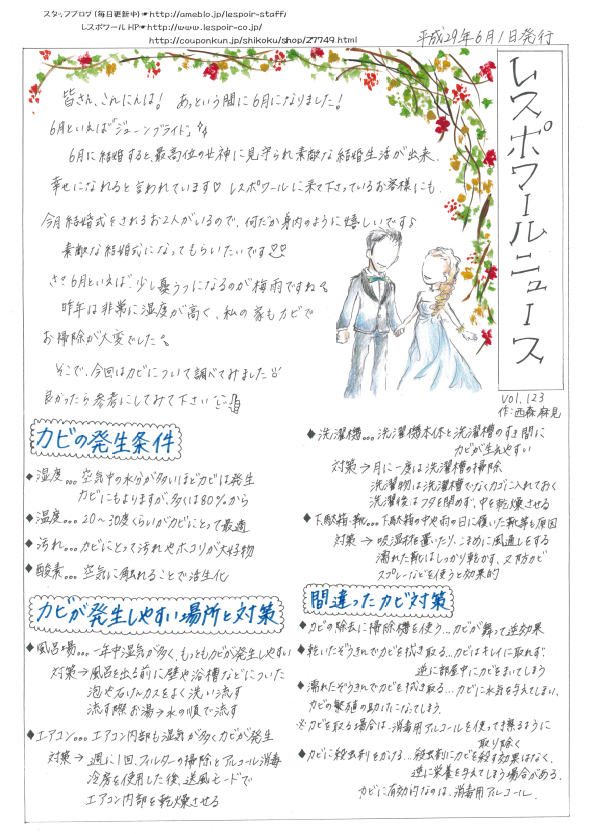 スタッフブログ(毎日更新中)☛http://ameblo.jp/lespoir-staff/
レスポワールHP☛http://www.lespoir-co.jp/
http://couponkun.jp/shikoku/shop/27749.html
平成29年6月1日発行
レスポワールニュース
vol.123
作:西森麻見
皆さん、こんにちは! あっという間に6月になりました!
6月といえば「ジューンブライド」
6月に結婚すると、最高位の女神に見守られ素敵な結婚生活が出来、
幸せになれると言われています♡ レスポワールに来て下さっているお客様にも、
今月結婚式をされるお2人がいるので、何だか身内のように嬉しいです♪
素敵な結婚式になってもらいたいです♡♡
さて6月といえば、少し憂うつになるのが梅雨ですね。
昨年は非常に湿度が高く、私の家もカビで
お掃除が大変でした。
そこで、今回はカビについて調べてみました
良かったら参考にしてみて下さい
カビの発生条件
◆湿度…空気中の水分が多いほどカビは発生
カビにもよりますが、多くは80%から
◆温度…20~30度くらいがカビにとって最適
◆汚れ…カビにとって汚れやホコリが大好物
◆酸素…空気に触れることで活性化
カビが発生しやすい場所と対策
◆風呂場…一年中湿気が多く、もっともカビが発生しやすい
対策→風呂を出る前に壁や浴槽などについた
泡や石けんカスをよく洗い流す
流す際お湯→水の順で流す
◆エアコン…エアコン内部も湿気が多くカビが発生
対策→週に1回、フィルターの掃除とアルコール消毒
冷房を使用した後、送風モードで
エアコン内部を乾燥させる
◆洗濯機…洗濯機本体と洗濯槽のすき間に
カビが生えやすい
対策→月に一度は洗濯槽の掃除
洗濯物は洗濯槽でなくカゴに入れておく
洗濯後はフタを閉めず、中を乾燥させる
◆下駄箱・靴…下駄箱の中や雨の日に履いた靴等も原因
対策→吸湿材を置いたり、こまめに風通しをする
濡れた靴はしっかり乾かす、又防カビ
スプレーなどを使うと効果的
間違ったカビ対策
◆カビの除去に掃除機を使う…カビが舞って逆効果
◆乾いたぞうきんでカビを拭き取る…カビはキレイに取れず、
逆に部屋中にカビをまいてしまう
◆濡れたぞうきんでカビを拭き取る…カビに水気を与えてしまい、
カビの繁殖の助けになってしまう。
※カビを取る場合は、消毒用アルコールを使って擦るように
取り除く
◆カビに殺虫剤をかける…殺虫剤にカビを殺す効果はなく、
逆に栄養を与えてしまう場合がある。
カビに有効的なのは、消毒用アルコール。